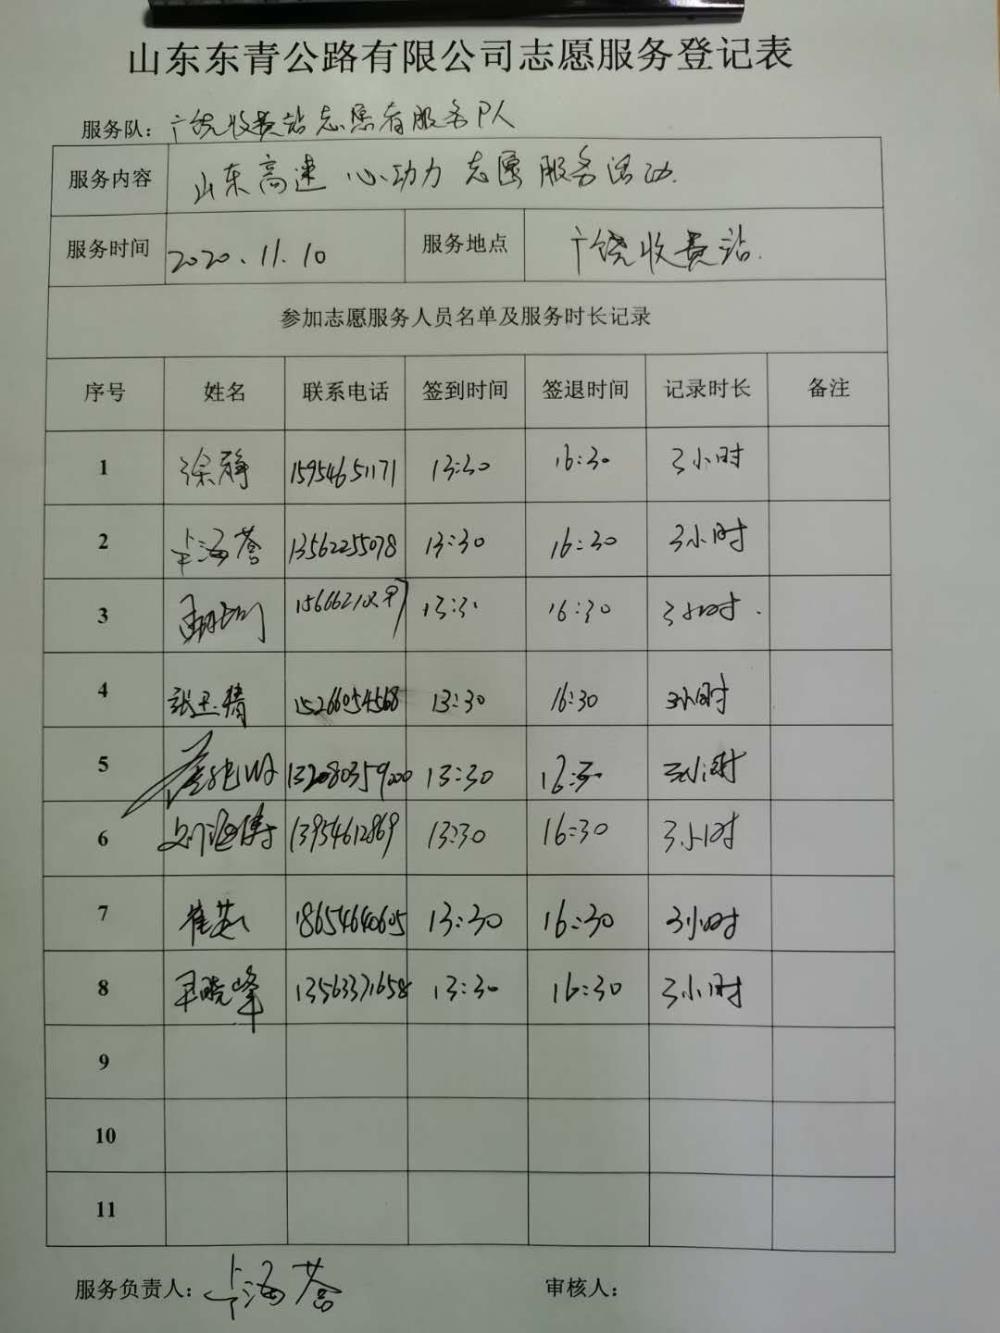 山东东青公路有限公司志愿服务登记表
服务队：广饶收费站志愿者服务队
服务内容 山东高速 心动力 志愿服务活动.
服务时间 2020.11.10 服务地点 广饶收费站.
参加志愿服务人员名单及服务时长记录
序号 姓名 联系电话 签到时间 签退时间 记录时长 备注
1 徐静 15954651171 13:30 16:30 3小时
2 卞海荟 13562255078 13:30 16:30 3小时
3 13:3 16:30 3小时.
4 15266054568 13:30 16:30 3小时
5 13280359000 13:30 16:30 3小时
6 13954612869 13:30 16:30 3小时
7 崔英 18654640605 13:30 16:30 3小时
8 晓峰 13563371658 13:30 16:30 3小时
9
10
11
服务负责人：卞海荟 审核人：